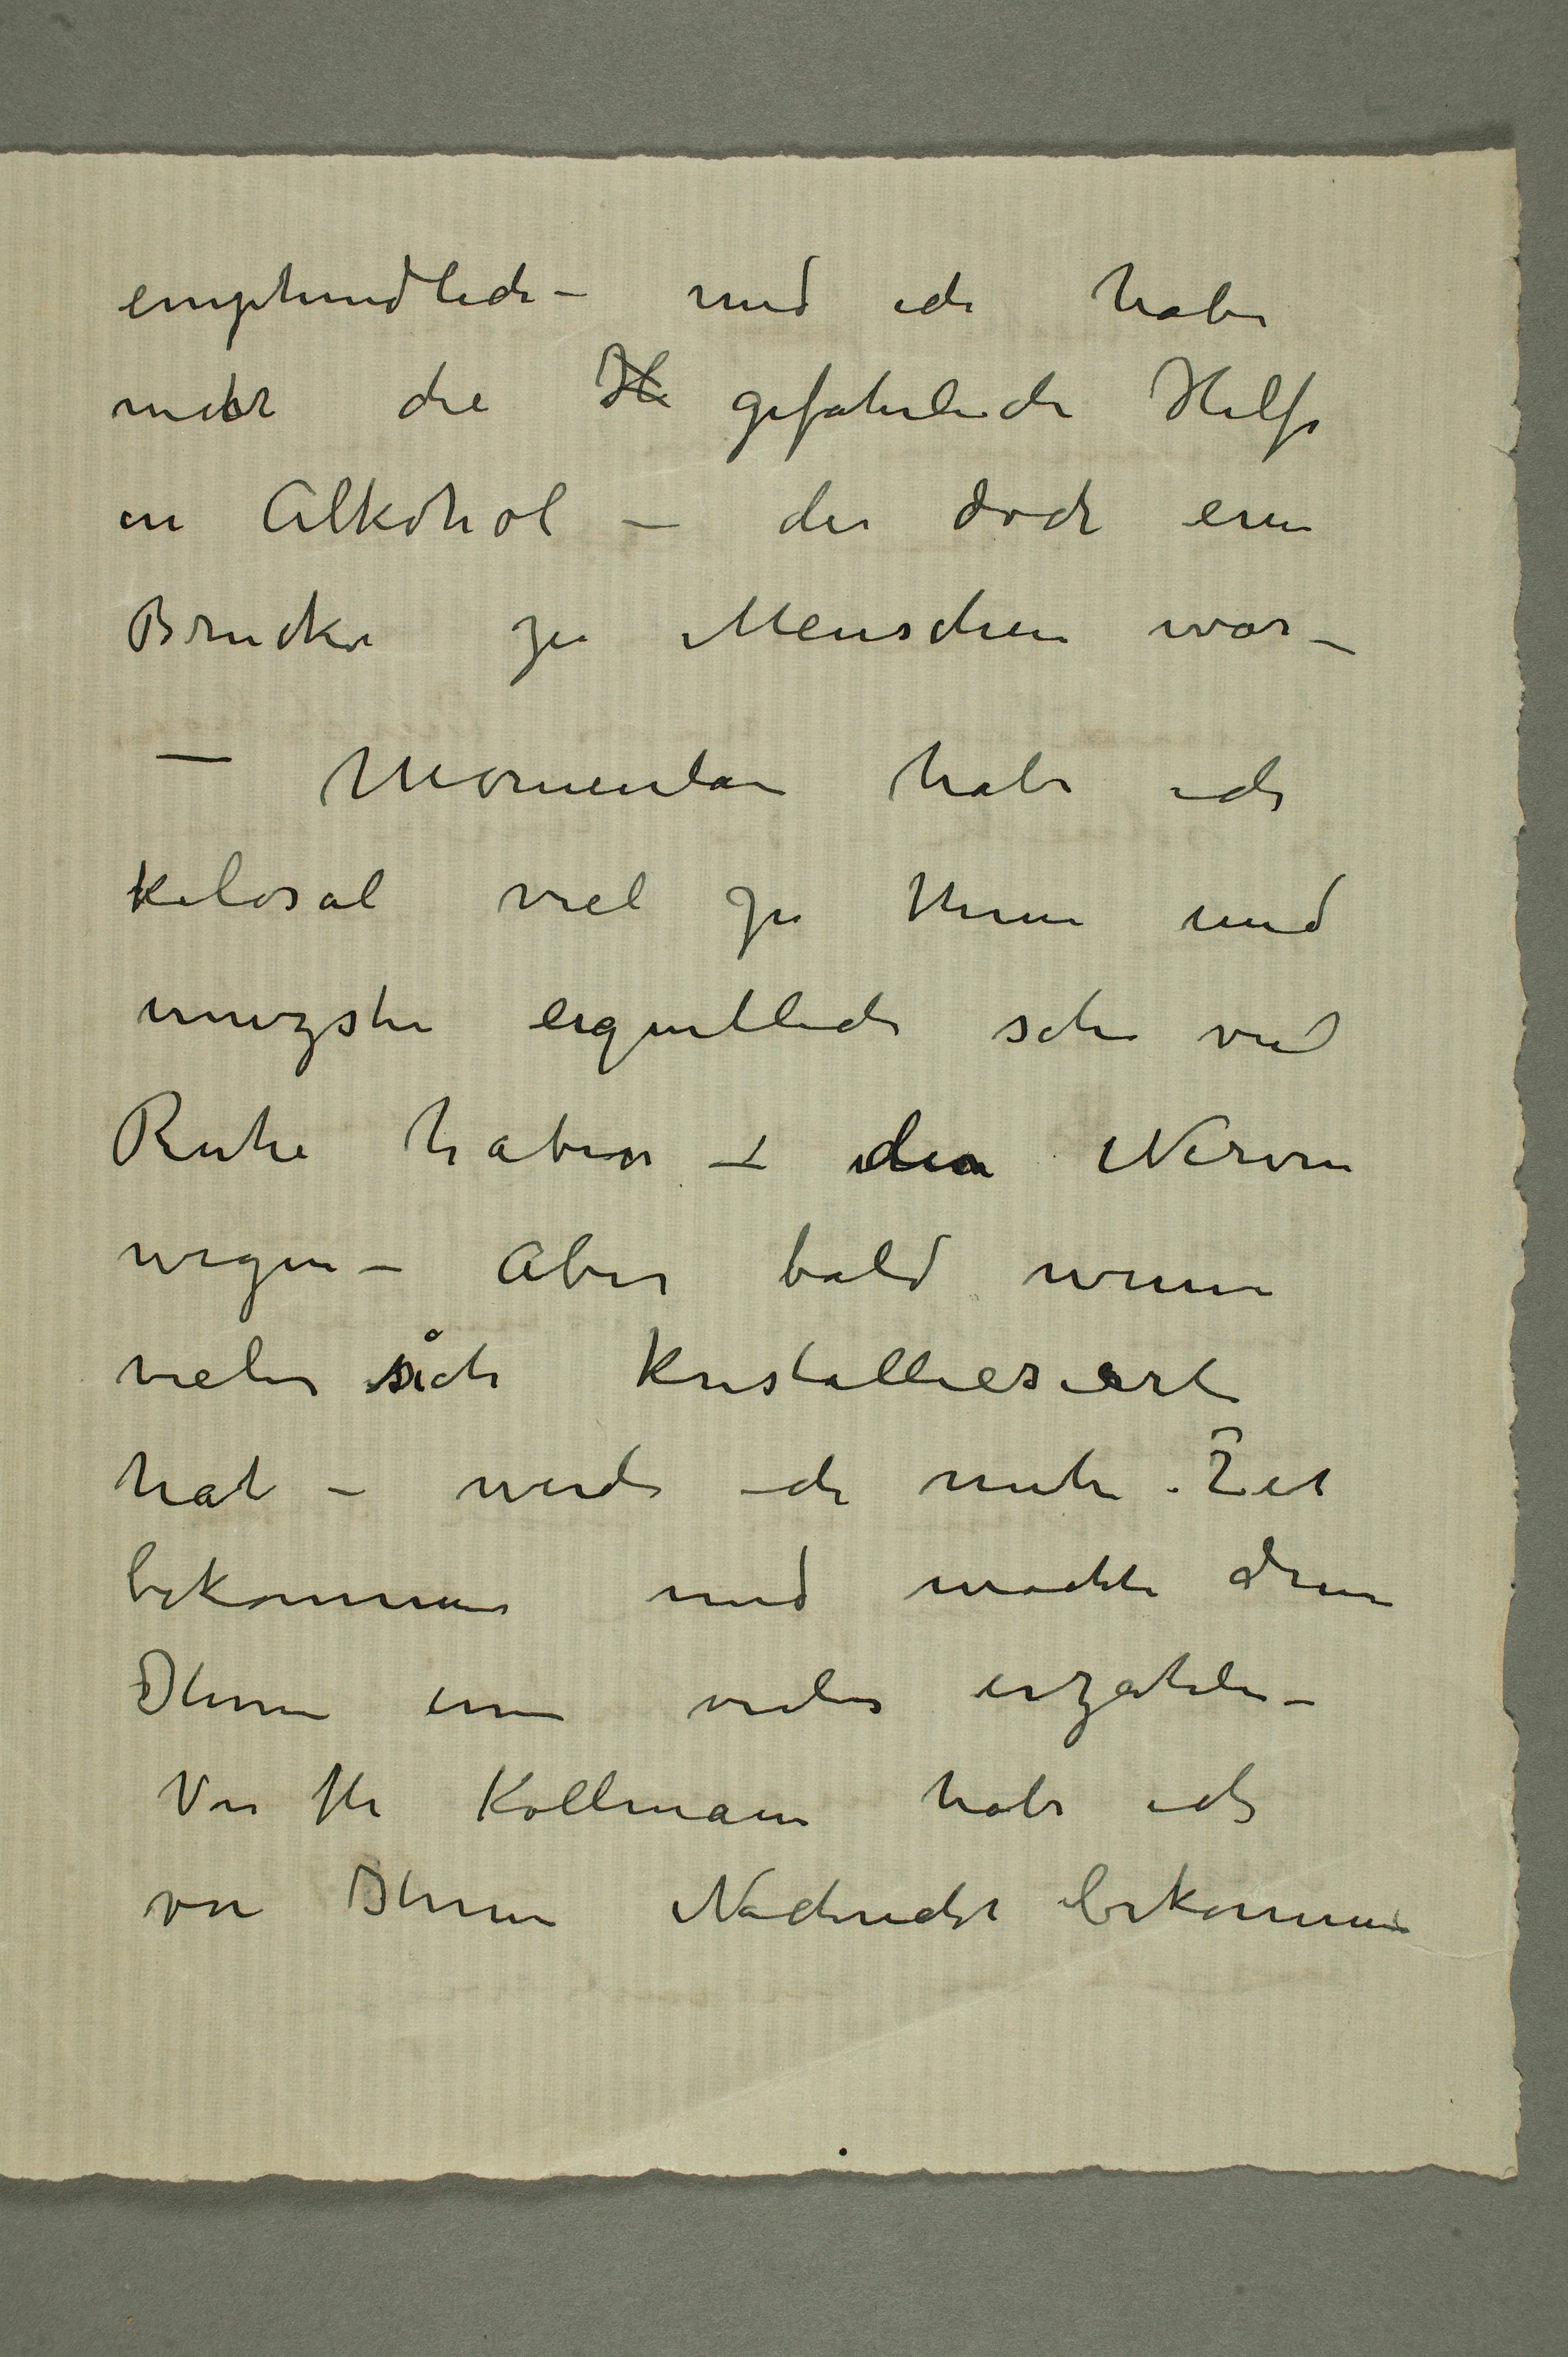 emphindlich – und ich habe
nicht die H gefahrliche Hilfe
in Alkohol – der doch eine
Brucke zu Menschen war –
– Momentan habe ich
kolosal viel zu thun und
musste eigentlich sehr viel
Ruhe haben – den Nerven
wegen – Aber bald wenn
vieles sich kristallisierte
hat – werde ich mehr Zeit
bekommen und mochte dann
Ihnen um vieles erzahlen –
Von Hr Kollmann habe ich
von Ihnen Nachricht bekommen